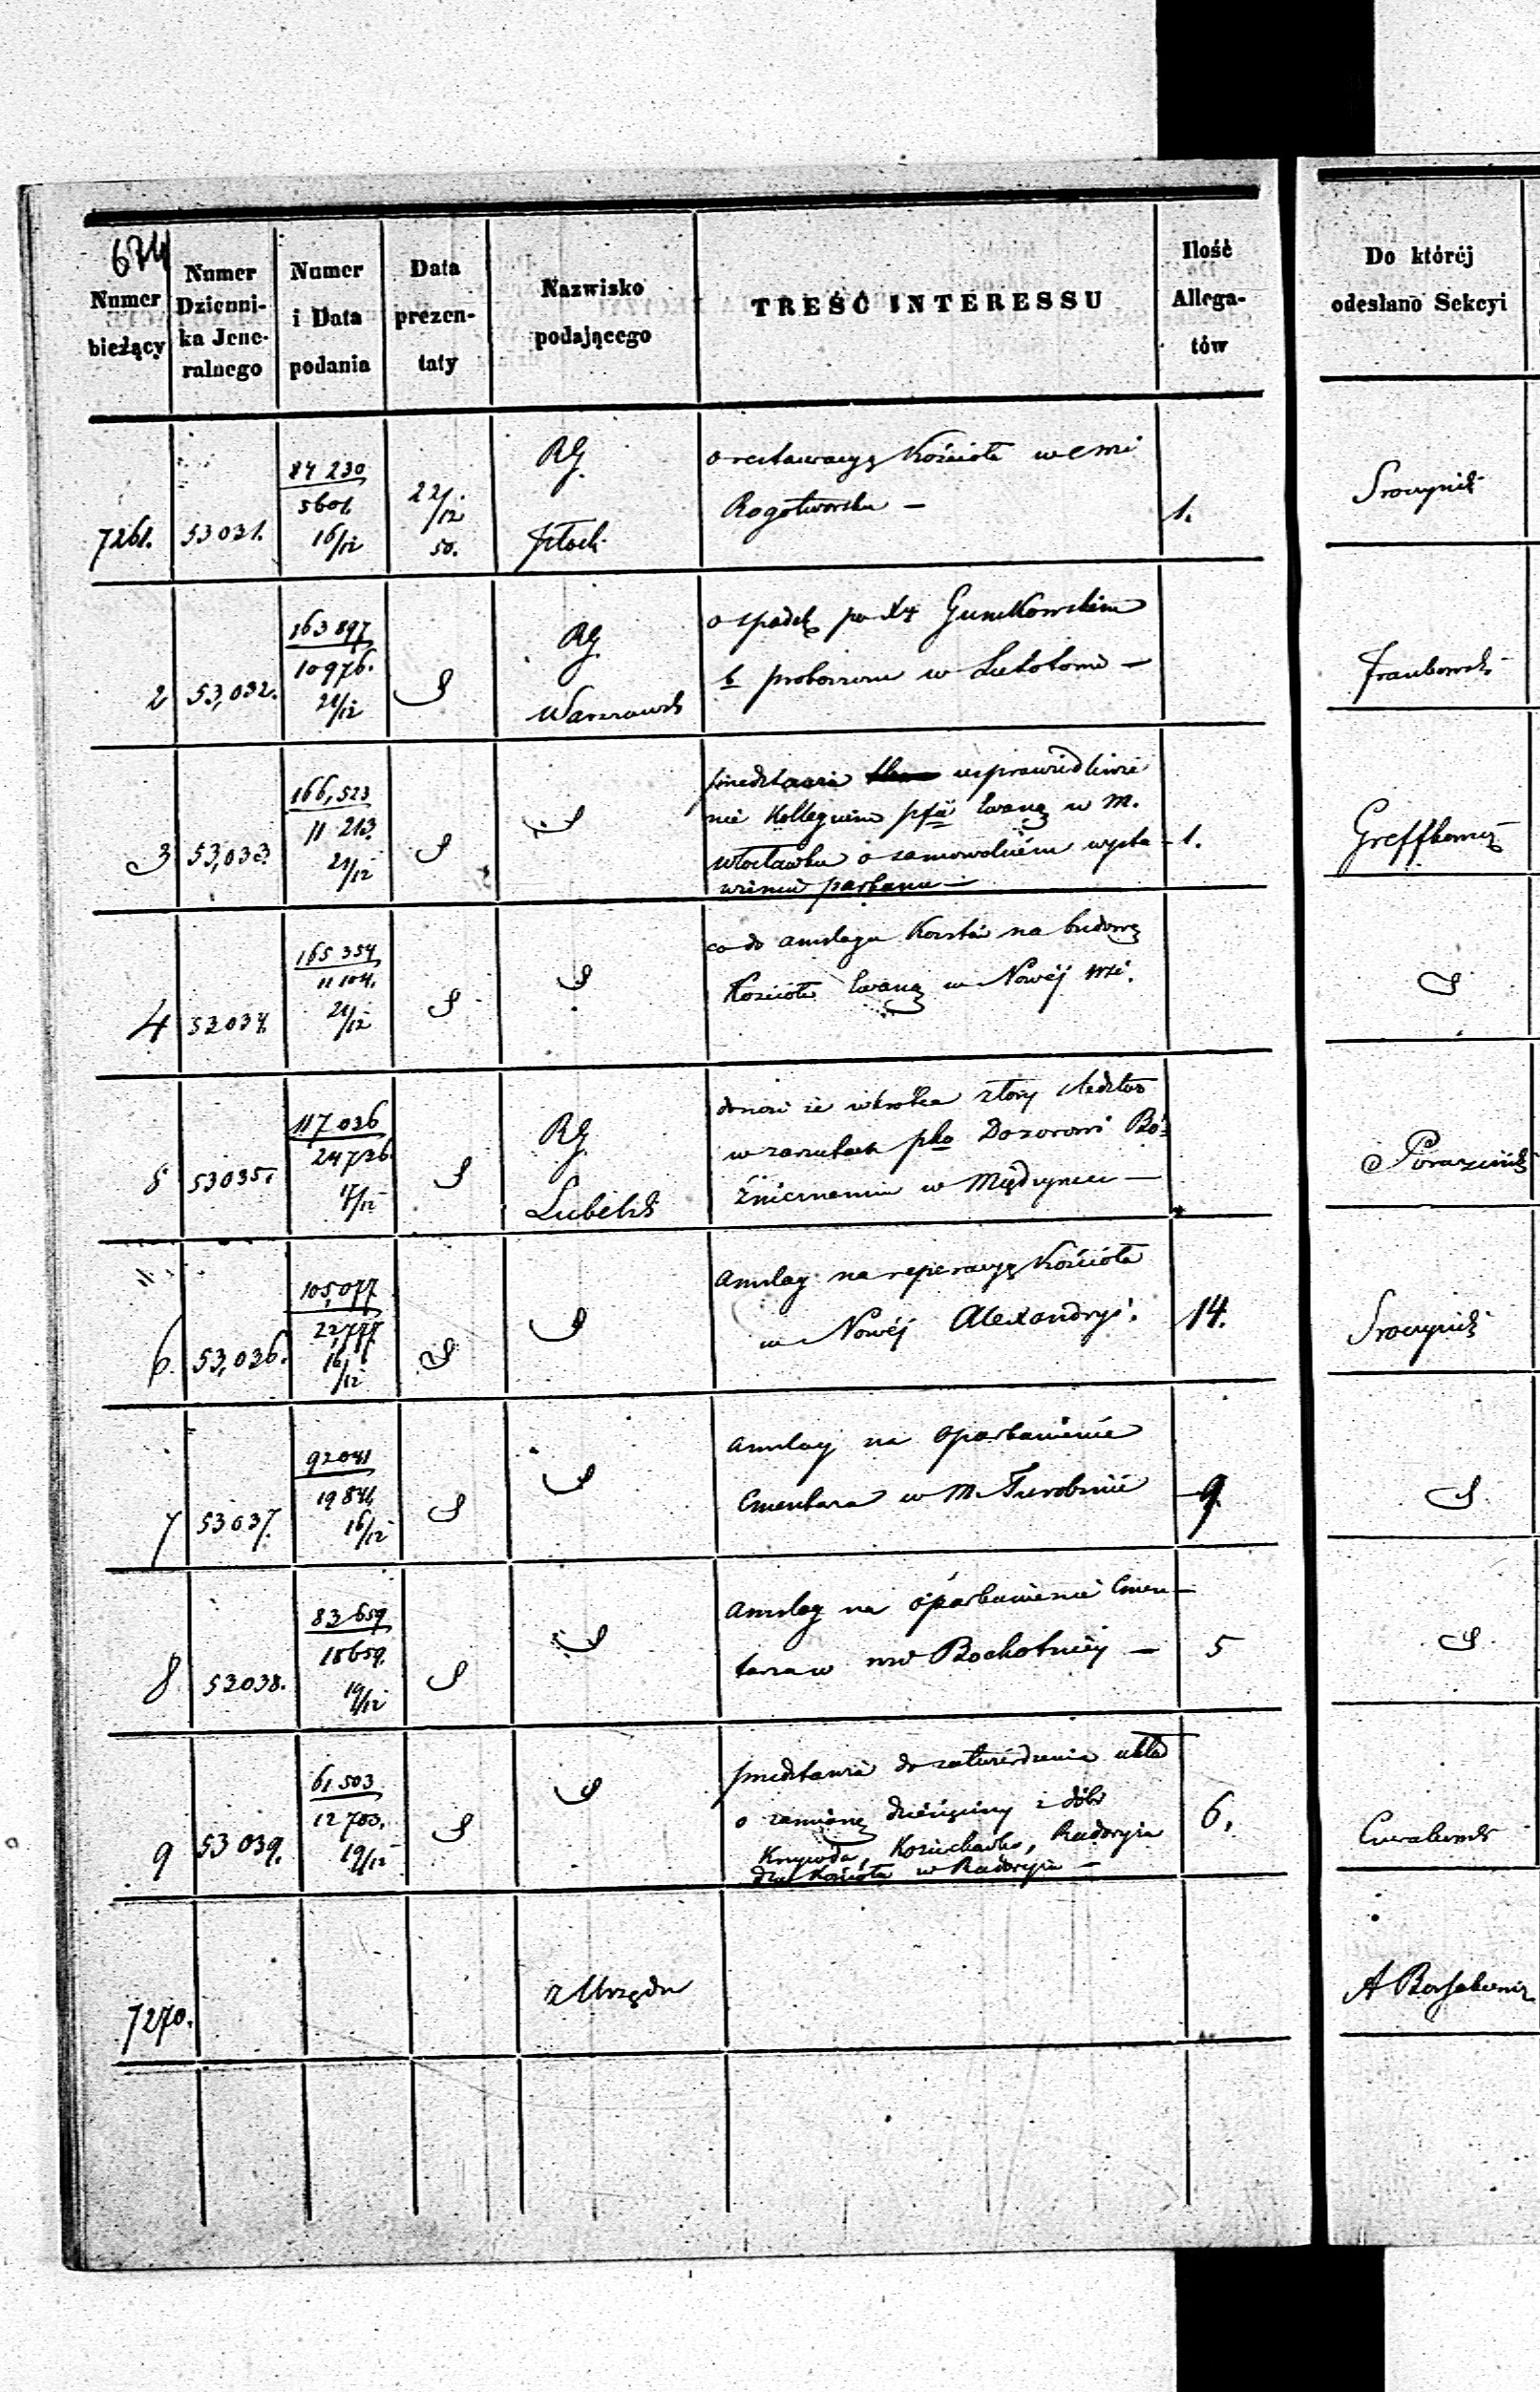 674
Numer bieżący
Numer Dzienni-ka Jene-ralnego
Numer i Data podania
Data prezen-taty
Nazwisko podającego
TREŚĆ INTERESSU
Ilość Allega-tów
Do której odesłano Sekcyi
7261. 53031. 84 230 5601. 16/12 22/12 50. RG. Płock
o restauracyą Kościoła we wsi
Rogotworsku —
1.
2 53,032. 163 897 10976. 21/12 RG. Warszawsk
o spadek po Xq
b proboszczu w Lututowie —
3 53,033. 166,523 11 213. 21/12
przedstawia usprawiedliwie
nie Kollegium Ewang w M.
Włocławku o samowolném wysta
wieniu parkanu —
1.
4 53034. 165 354 11104. 21/12
co do anszlagu Kosztów na budowę
Kościoła Ewang w Nowéj wsi.
5 53035. 117 036 24736. 17/12 RG. Lubelsk
donosi że wkrótce złoży śledztwo
w zarzutach pko Dozorowi Bó-
żnicznemu w Międzyrzecu —
6 53,036. 105,077 22,777. 16/12
Anszlag na reperacyą Kościoła
w Nowéj Alexandryi.
14.
7 53037. 92041 19 841. 16/12
Anszlag na oparkanienie
Cmentarza w M. Turobinie
9.
8 53038. 83 659 18659. 19/12
Anszlag na oparkanienie Cmen-
tarza w wsi Bochotnicy —
5
9 53 039. 61 503 12 703. 19/12
przedstawia do zatwierdzenia układ
o zamianę dziesięciny z dóbr
Krzywda, Kożuchówka, Radoryża
dla Kościoła w Radoryżu —
6.
7270.
z Urzędu